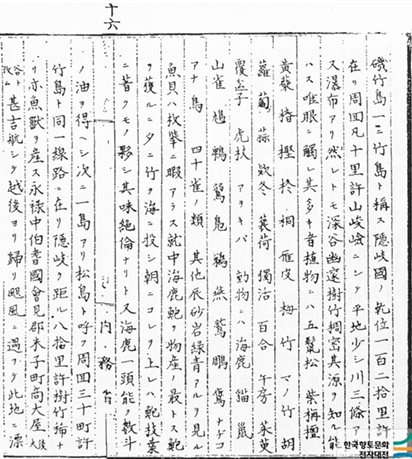 十六
磯竹島一ニ竹島ト稱ス隱岐國ノ乾位一百二拾里許ニ
在リ周回凡十里許山峻嶮ニシテ平地少シ川三條アリ
又瀑布アリ然レトモ深谷幽邃樹竹稠密其源ヲ知ル能
ハス唯眼ニ觸レ其多キ者植物ニハ五鬣松 紫栴檀
黄蘗 椿 樫 柊 桐 雁皮 梅 竹 マノ竹 胡
蘿蔔 蒜 欵冬 蘘荷 獨活 百合 牛房 茱萸
覆盆子 虎杖 アヲキバ 動物ニハ海鹿 猫 鼠
山雀 鳩 鵯 鶸 鳧 鵜 燕 鷲 鵰 鷹 ナデコ
アナ鳥 四十雀ノ類 其他辰砂岩緑青アルヲ見ル
魚貝ハ枚擧ニ暇アラス就中海鹿鮑ヲ物産ノ最トス鮑
ヲ獲ルニ夕ニ竹ヲ海ニ投シ朝ニコレヲ上レハ鮑枝葉
ニ著クモノ夥シ其味絶倫ナリト又海鹿一頭能ク數斗
内務省
ノ油ヲ得ヘシ次ニ一島アリ松島ト呼フ周回三十町許
竹島ト同一線路ニ在リ隱岐ヲ距ル八拾里許樹竹稀ナ
リ亦魚獸ヲ産ス永禄中伯耆國會見郡米子町商大屋
後村川ト改ム
甚吉航シテ越後ヨリ歸リ颶風ニ遇フテ此地ニ漂
한국향토문화
전자대전